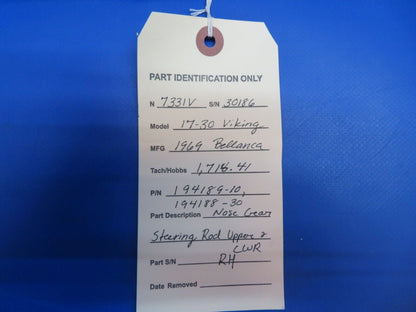 PART IDENTIFICATION ONLY
N 7331V S/N 30186
Model 17-30 Viking
MFG 1969 Bellanca
Tach/Hobbs 1,716.41
P/N 194189-10,
194188-30
Part Description Nose Gear
Steering Rod Upper & LWR
Part S/N RH
Date Removed